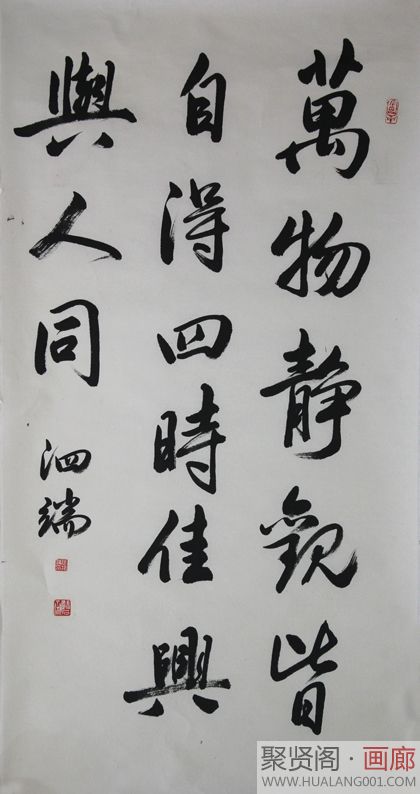 萬物靜觀皆
自得四時佳興
與人同
泗端
聚贤阁·画廊
WWW.HUALANG001.COM